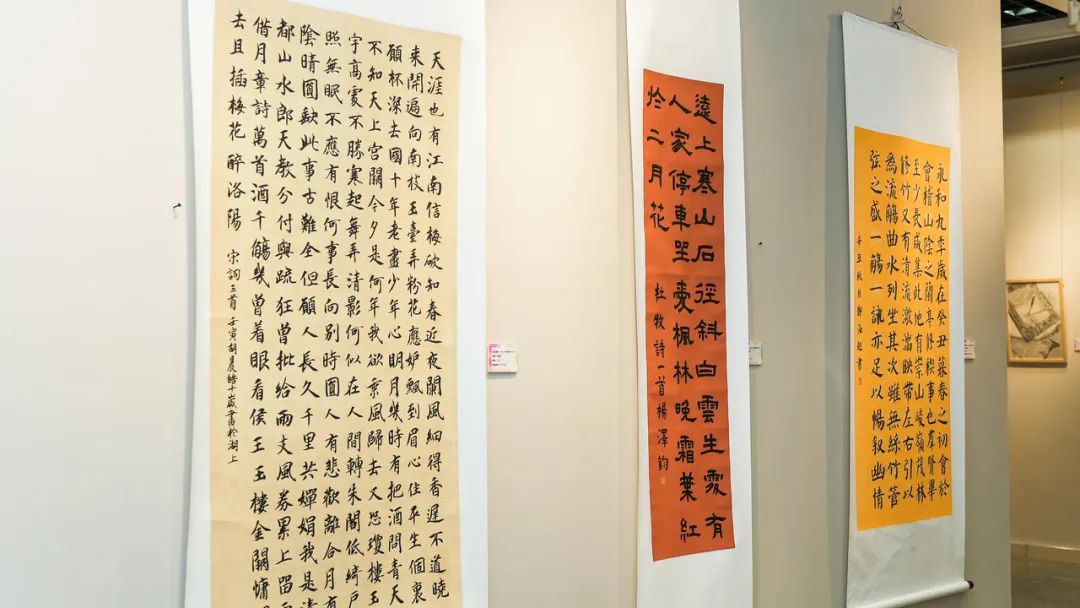 天涯也有江南信梅破知春近夜闌風細得香遲不道曉
来開遍向南枝玉臺弄粉花應妒飄到眉心住平生個裏
願杯深去國十年老盡少年心明月幾時有把酒問青天
不知天上宮闕今夕是何年我欲乘風歸去又恐瓊樓玉
宇高處不勝寒起舞弄清影何似在人間轉朱閣低綺戶
照無眠不應有恨何事長向別時圓人有悲歡離合月有
陰晴圓缺此事古難全但願人長久千里共嬋娟我是清
都山水郎天教分付與疏狂曾批給雨支風券累上留
借月章詩萬首酒千觴幾曾着眼看侯王玉樓金闕慵
去且插梅花醉洛陽 宋詞三首 壬寅胡晨皓十歲書於湖上
遠上寒山石徑斜白雲生處有
人家停車坐愛楓林晚霜葉紅
於二月花 杜牧詩一首楊澤鈞
永和九年歲在癸丑暮春之初會於
會稽山陰之蘭亭修禊事也群賢畢
至少長咸集此地有崇山峻嶺茂林
修竹又有清流激湍映帶左右引以
為流觴曲水列坐其次雖無絲竹管
弦之盛一觴一詠亦足以暢叙幽情
辛丑秋月鄭海起書